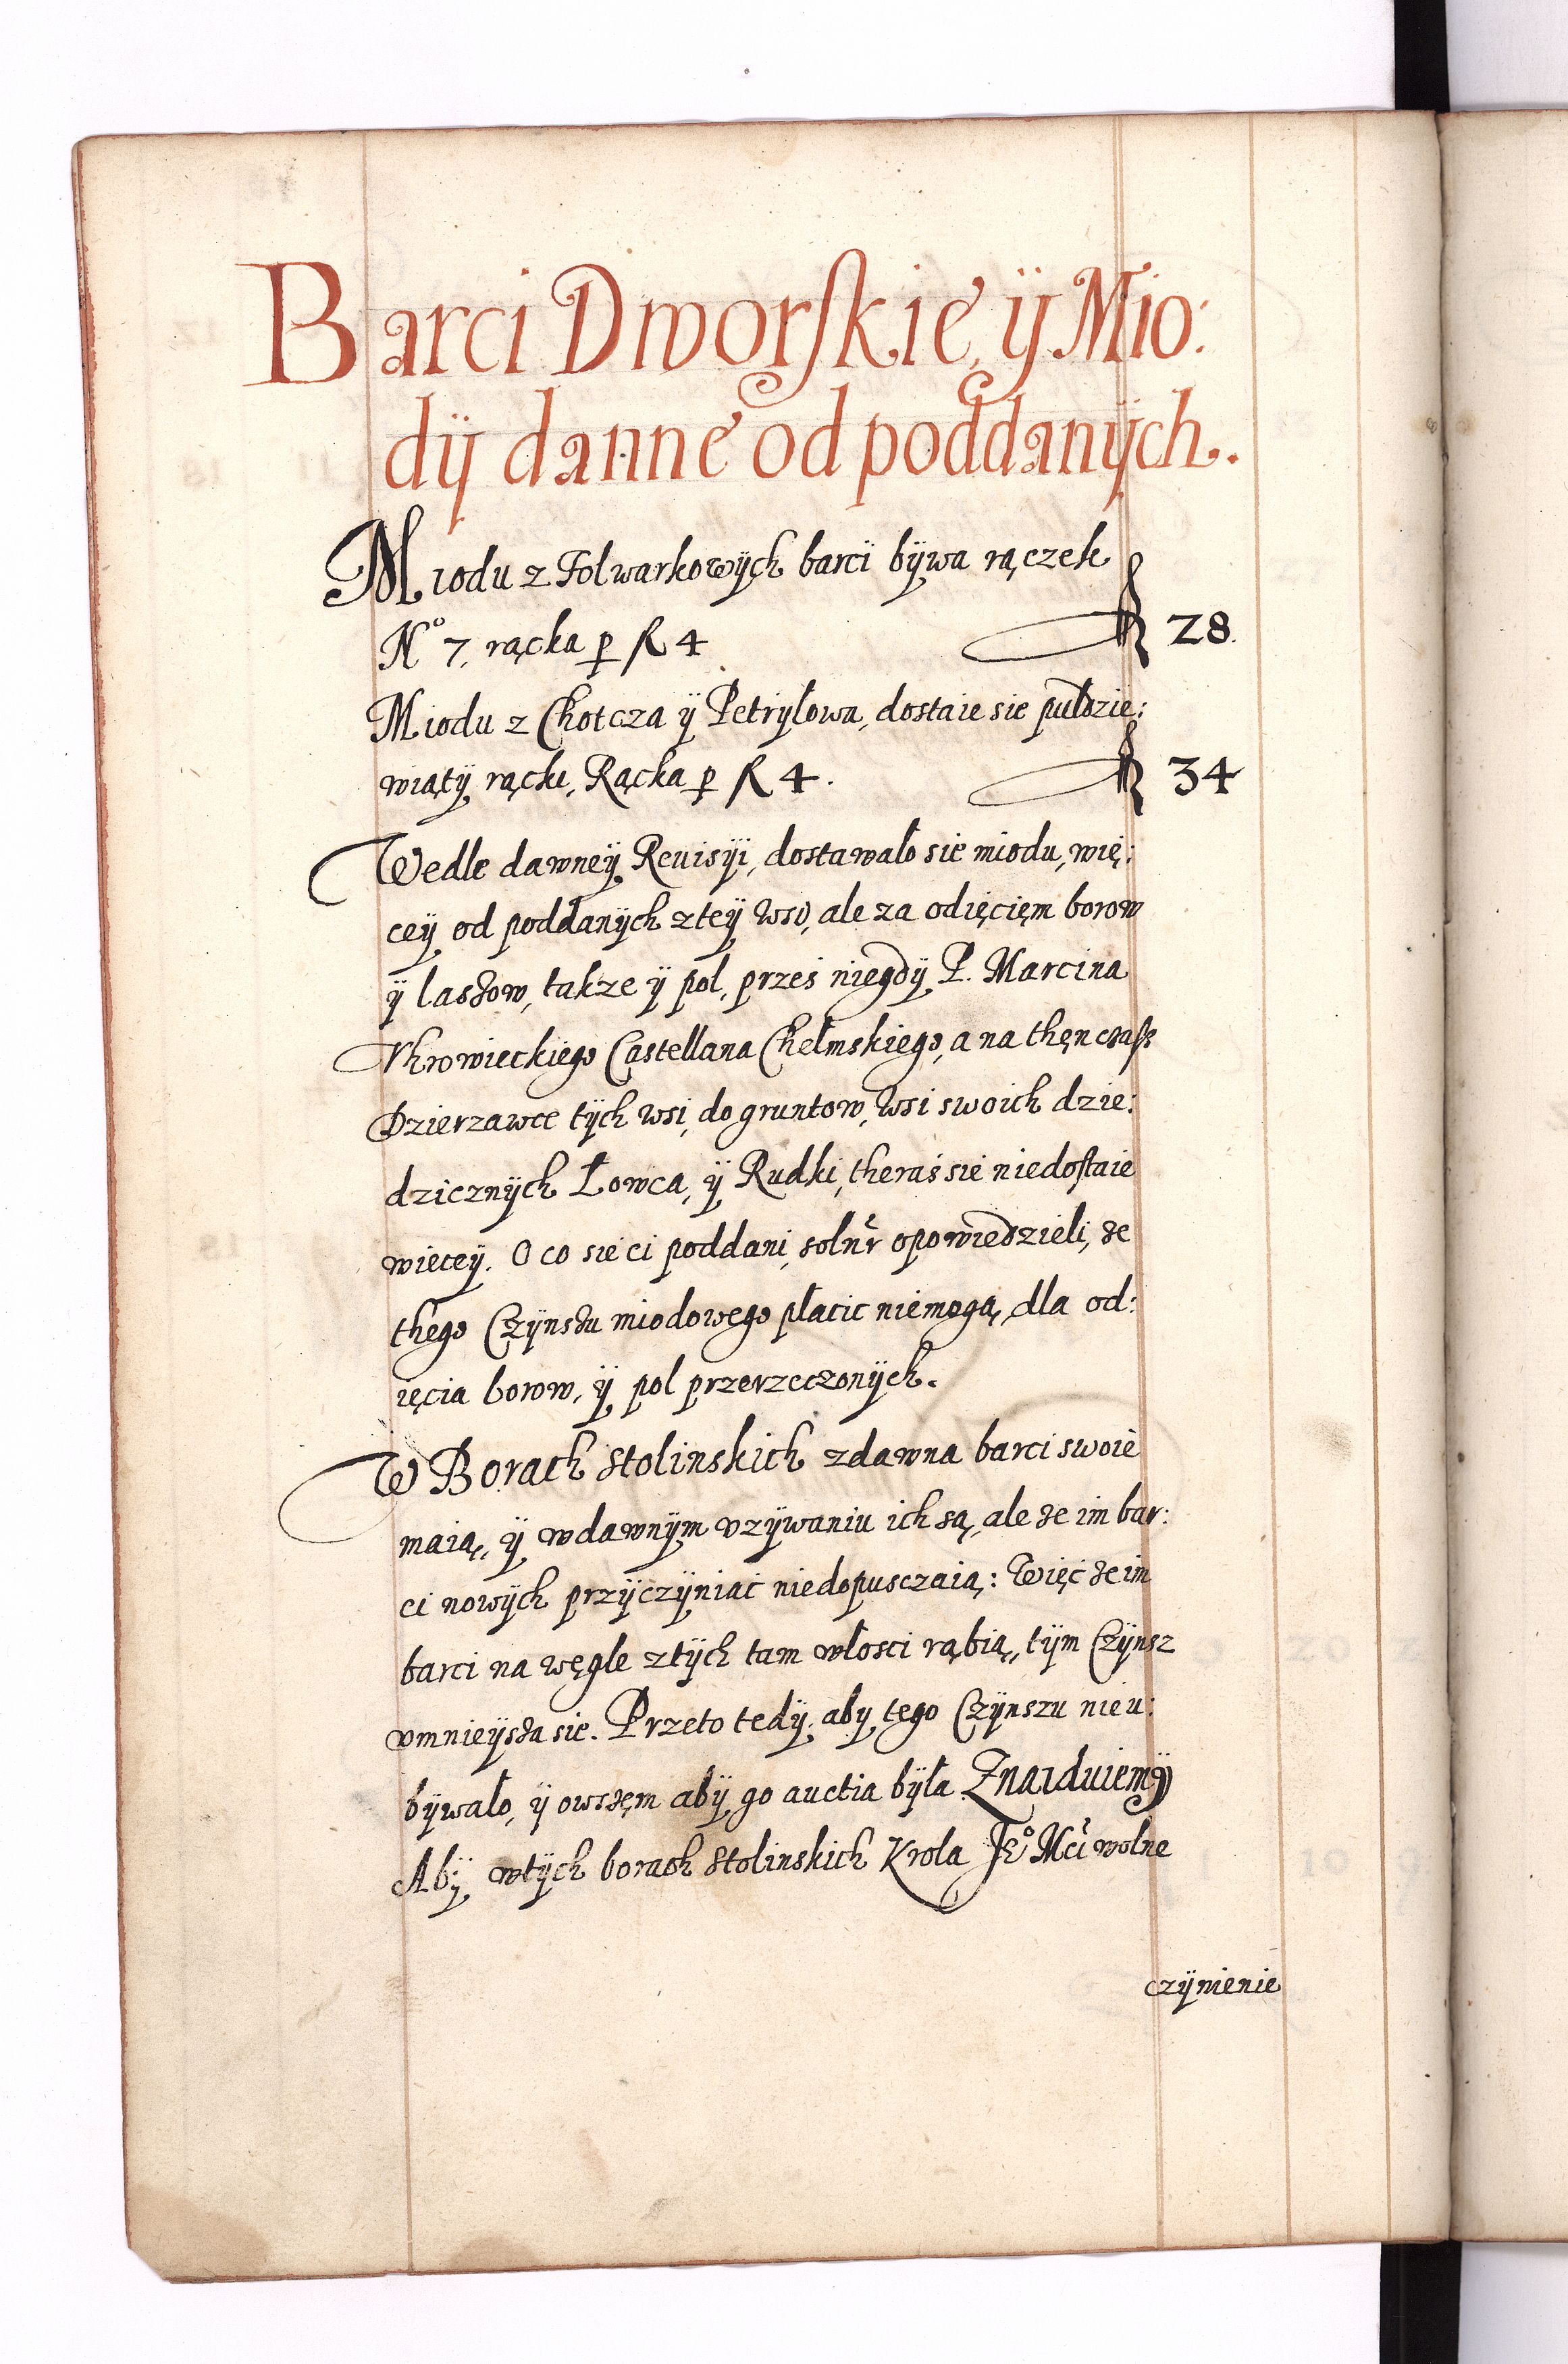 Barci Dworskie, ÿ Mio:
dÿ danne od poddanÿch.
Miodu z Folwarkowÿch barci bÿwa rączek
No 7, rącka p fl 4 28.
Miodu z Chotcza ÿ Petrylowa, dostaie sie pułdzie:
wiątÿ rącki, Rącka p fl 4. 34
Wedle dawneÿ Reuisÿi, dostawało sie miodu, wię:
ceÿ od poddanÿch zteÿ wsi, ale za odięcięm borow
ÿ lasow, takze ÿ pol, przes niegdÿ P. Marcina
Vhrowieckiego Castellana Chełmskiego, a na thęn czas
Dzierzawce tÿch wsi, do gruntow, wsi swoich dzie:
dzicznÿch Łowca, ÿ Rudki, theras sie niedostaie
wieceÿ. O co sie ci poddani, solnr opowiedzieli, ze
thego Czÿnszu miodowego płacic niemogą, dla od:
ięcia borow, ÿ pol przerzeczonÿch.
W Borach Stolinskich zdawna barci swoie
maią, ÿ wdawnÿm vzÿwaniu ich są, ale ze im bar:
ci nowÿch przÿczÿniać niedopusczaią: Więc ze im
barci na węgle ztÿch tam włosci rąbią, tÿm Czÿnsz
vmnieÿsza sie. Przeto tedÿ, aby tego Czÿnszu nie u:
bÿwało, ÿ owszęm abÿ go auctia bÿła Znaiduiemÿ
Abÿ wtÿch borach Stolinskich Krola Jeo Mci wolne
czÿnienie